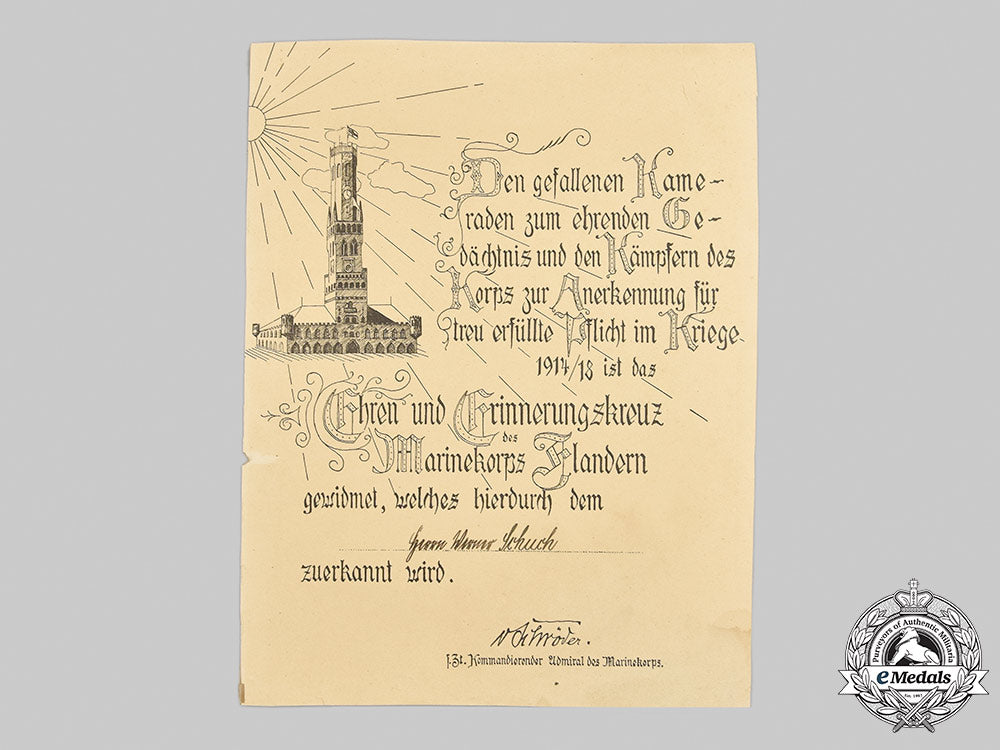 Den gefallenen Kame-
raden zum ehrenden Ge-
dächtnis und den Kämpfern des
Korps zur Anerkennung für
treu erfüllte Pflicht im Kriege
1914/18 ist das
Ehren und Erinnerungskreuz
des
Marinekorps Flandern
gewidmet, welches hierdurch dem
Herrn Werner Schuch
zuerkannt wird.
v Schröder.
z. Zt. Kommandierender Admiral des Marinekorps.
Purveyors of Authentic Militaria
eMedals
Est. 1967